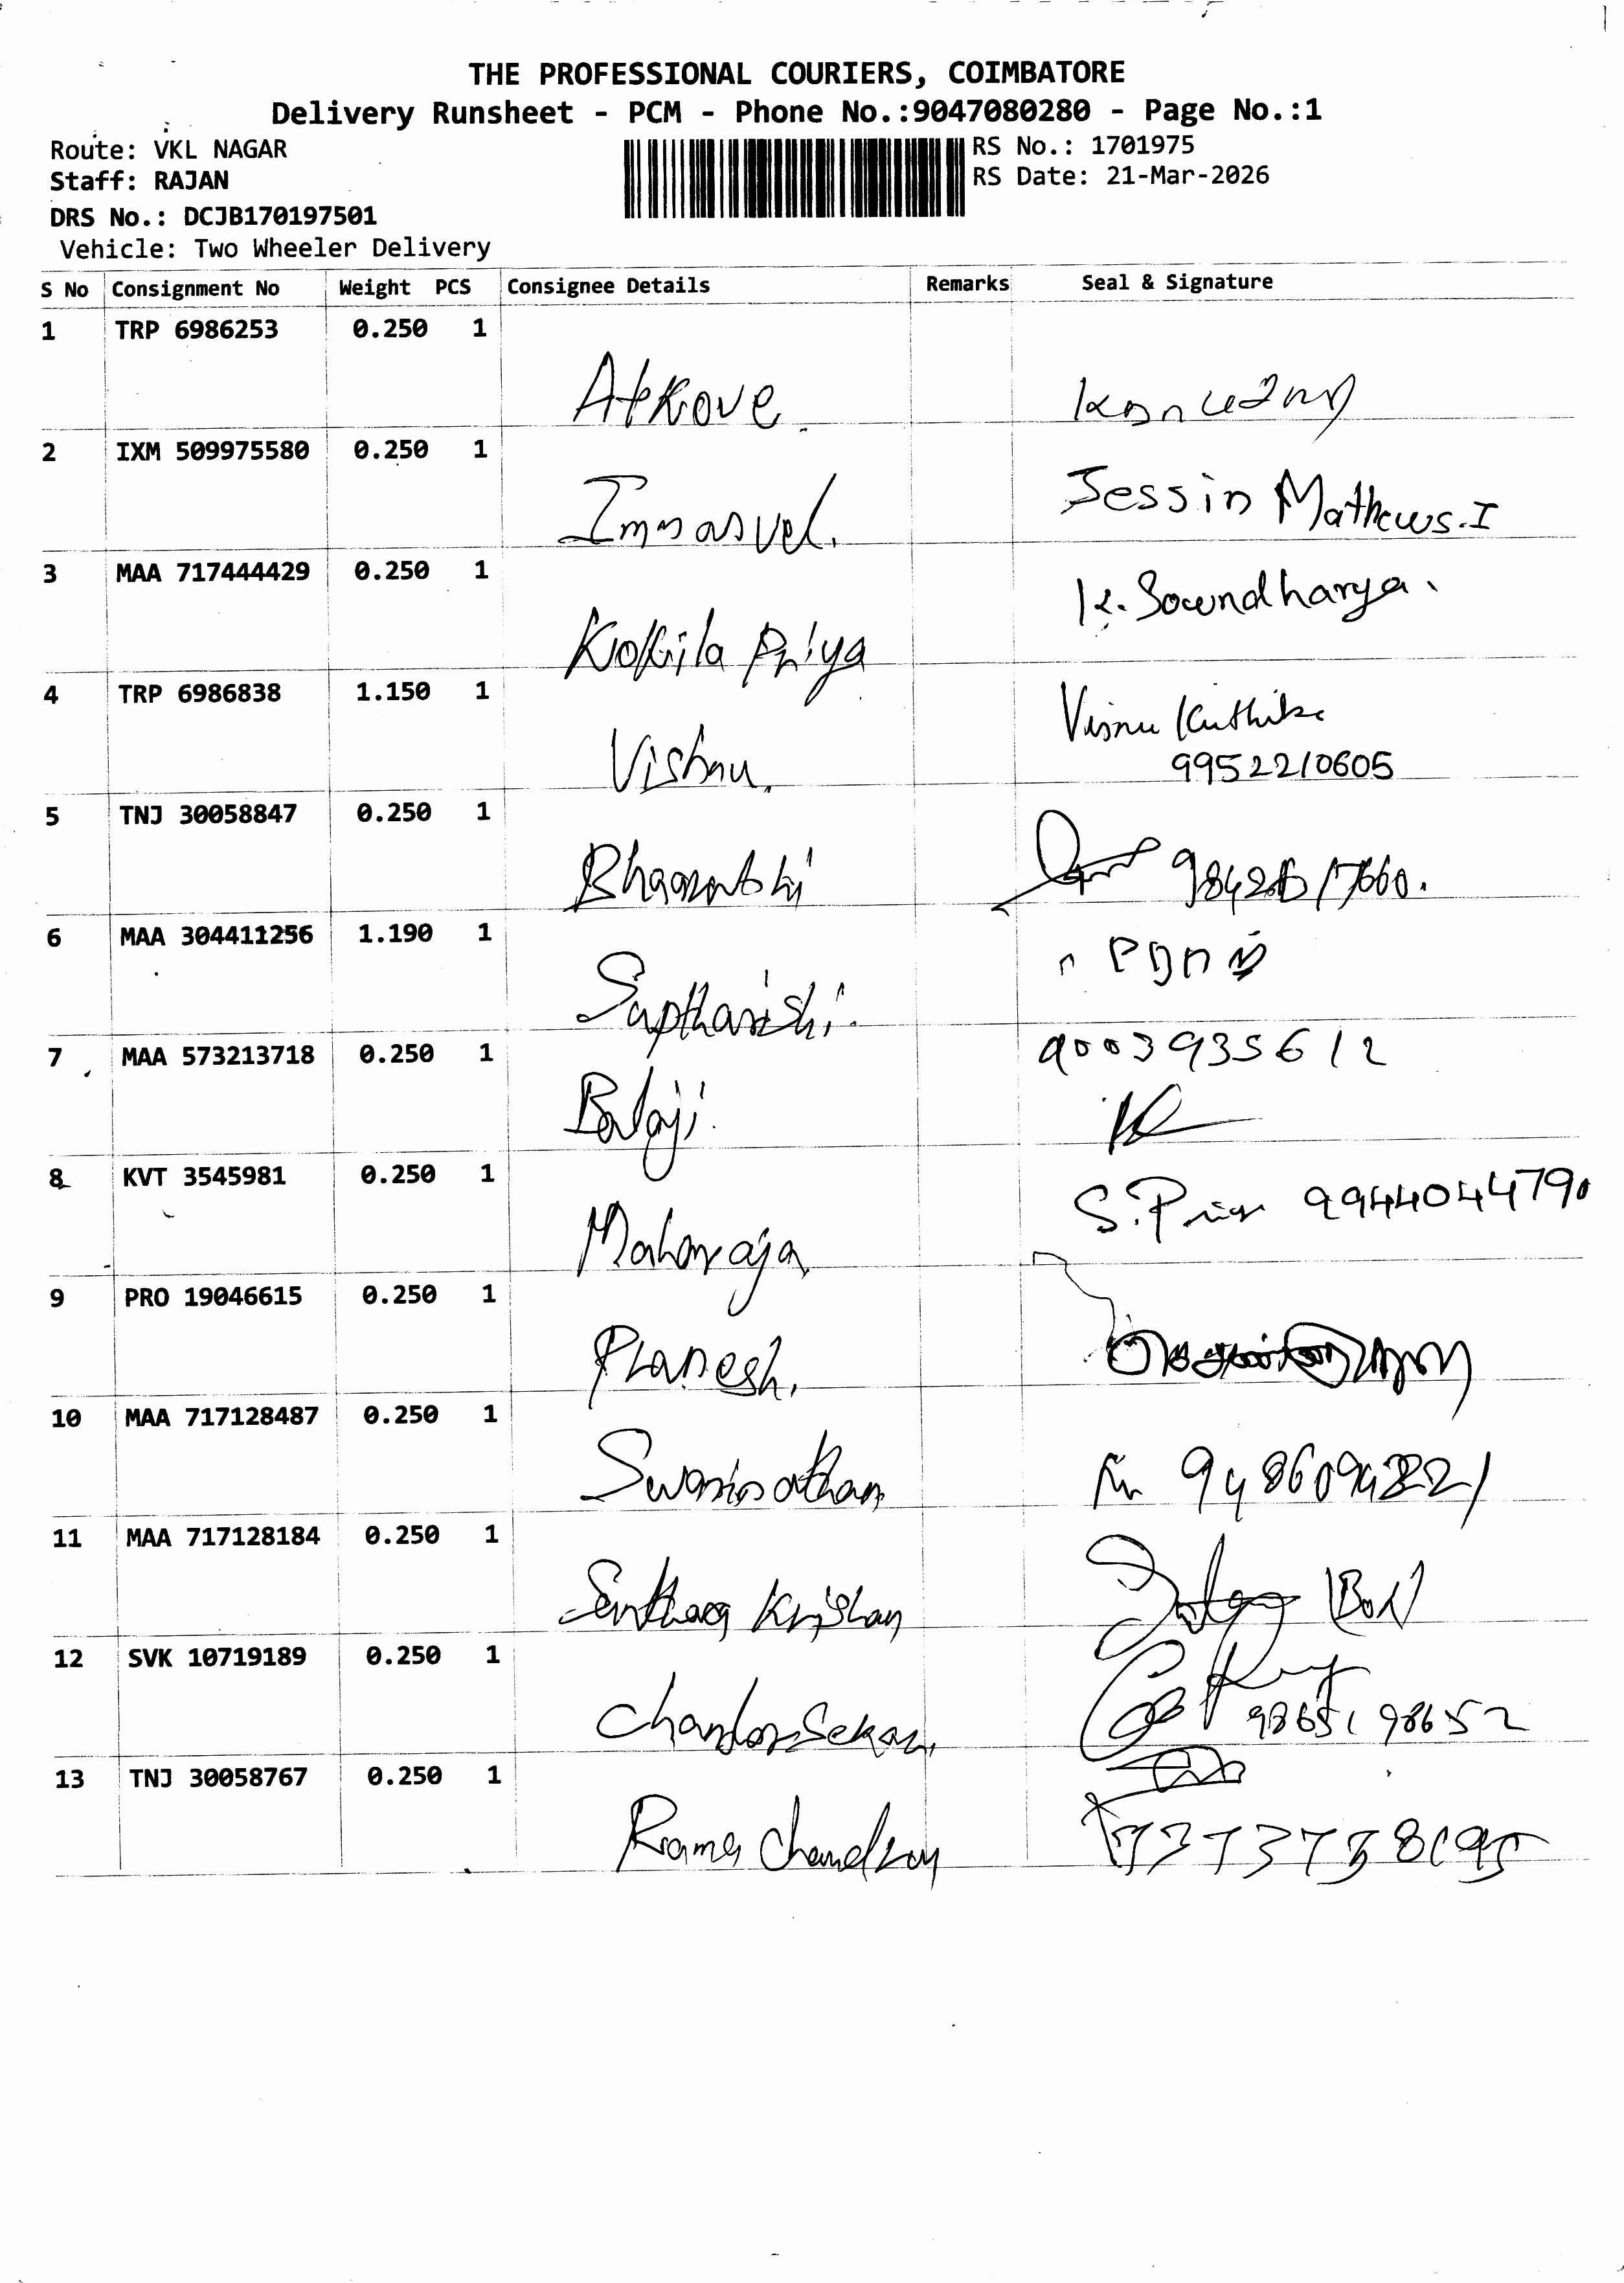 THE PROFESSIONAL COURIERS, COIMBATORE
Delivery Runsheet - PCM - Phone No.:9047080280 - Page No.:1
Route: VKL NAGAR
RS No.: 1701975
Staff: RAJAN
RS Date: 21-Mar-2026
DRS No.: DCJB170197501
Vehicle: Two Wheeler Delivery
S No Consignment No Weight PCS Consignee Details Remarks Seal & Signature
1 TRP 6986253 0.250 1
2 IXM 509975580 0.250 1
Jessin Mathews.I
3 MAA 717444429 0.250 1
K. Soundharya.
Kokila Priya
4 TRP 6986838 1.150 1
Vishnu.
9952210605
5 TNJ 30058847 0.250 1
6 MAA 304411256 1.190 1
Saptharishi.
7 MAA 573213718 0.250 1 9003935612
Balaji.
8 KVT 3545981 0.250 1
9944044790
Maharaja
9 PRO 19046615 0.250 1
Pranesh.
10 MAA 717128487 0.250 1
11 MAA 717128184 0.250 1
Krishan
12 SVK 10719189 0.250 1
9865198652
13 TNJ 30058767 0.250 1
Rama